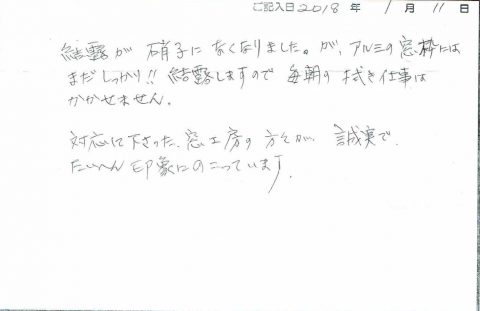 ご記入日 2018 年 1 月 11 日
結露が 硝子に なくなりました。が、アルミの窓枠には
まだしっかり!! 結露しますので 毎朝の 拭き仕事は
かかせません。
対応して下さった、窓工房の方々が、誠実で、
たいへん 印象にのこっています。